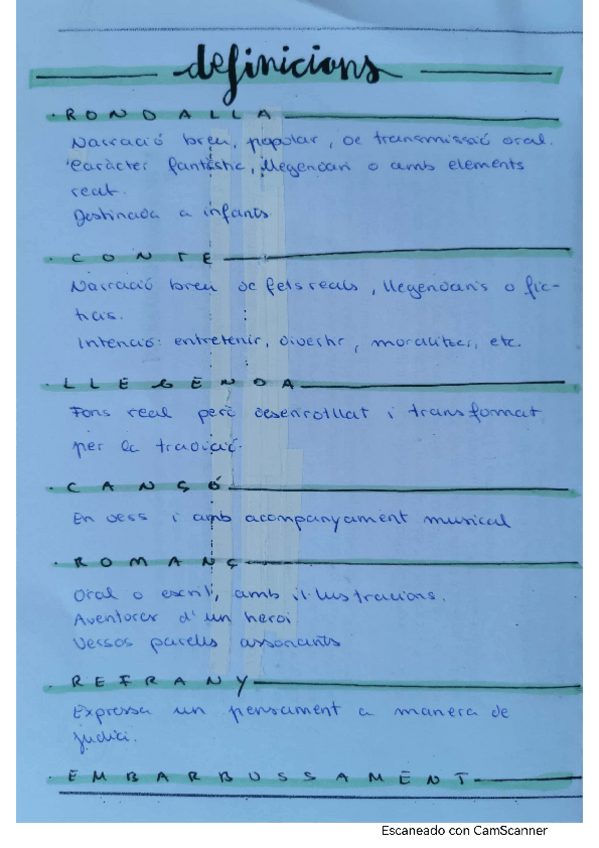 definicions
· RONDALLA
Narració breu, popular, de transmissió oral.
Caràcter fantàstic, llegendari o amb elements
real.
Destinada a infants
· CONTE
Narració breu de fets reals, llegendaris o fic-
ticis.
Intenció: entretenir, divertir, moralitzar, etc.
· LLEGENDA
Fons real però desenrotllat i transformat
per la tradició.
· CANÇÓ
En vers i amb acompanyament musical
· ROMANÇ
Oral o escrit, amb il·lustracions.
Aventures d'un heroi
Versos parells assonants
· REFRANY
Expressa un pensament a manera de
judici.
· EMBARBUSSAMENT
Escaneado con CamScanner